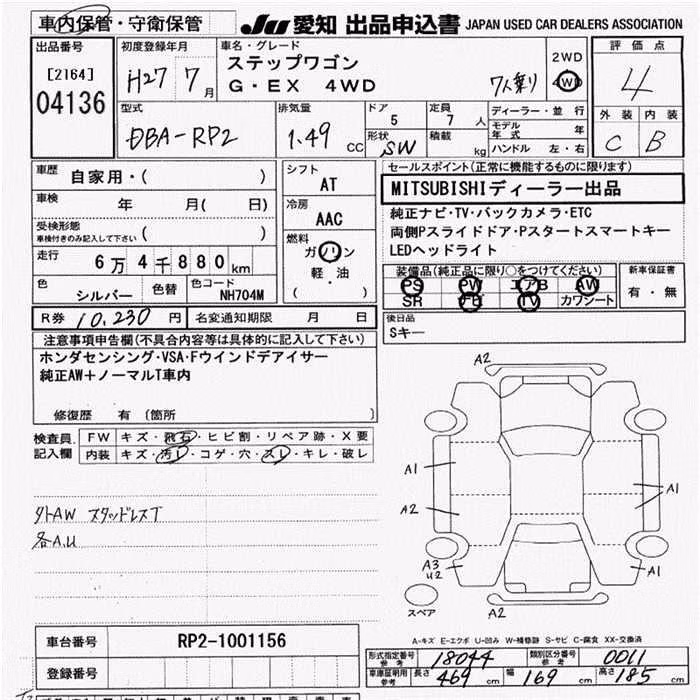 車内保管・守衛保管
JU 愛知 出品申込書 JAPAN USED CAR DEALERS ASSOCIATION
出品番号
[2164]
04136
初度登録年月
H27 7月
車名・グレード
ステップワゴン
G・EX 4WD
7人乗り
2WD
4WD
評価点
4
外装 内装
C B
型式
DBA-RP2
排気量
1.49 CC
ドア
5
定員
7 人
形状
SW
積載
kg
ディーラー・並行
モデル年式 年
ハンドル 左・右
車歴
自家用・( )
車検 年 月( 日)
受検形態
車検付きのみ記入して下さい ( )
走行 6万4千880km
色 シルバー 色替 色コード NH704M
シフト
AT
冷房
AAC
燃料
ガソリン
軽・油
( )
セールスポイント(正常に機能するものに限ります)
MITSUBISHIディーラー出品
純正ナビ・TV・バックカメラ・ETC
両側Pスライドドア・Pスタートスマートキー
LEDヘッドライト
装備品(純正品に限り○をつけてください)
PS PW エアB AW
SR ナビ TV カワシート
新車保証書
有・無
R券 10,230 円 名変通知期限 月 日
後日品
Sキー
注意事項申告欄(不具合内容等は具体的に記入して下さい)
ホンダセンシング・VSA・Fウインドデアイサー
純正AW+ノーマルT車内
修復歴 有 (箇所 )
検査員記入欄
FW キズ・飛石・ヒビ割・リペア跡・X要
内装 キズ・汚レ・コゲ・穴・スレ・キレ・破レ
外AW スタッドレスT
各A.U
A2
A1
A2
A1
A3
U2
A1
A2
スペア
A-キズ E-エクボ U-凹み W-補修跡 S-サビ C-腐食 XX-交換済
車台番号 RP2-1001156
登録番号
形式指定番号 参考 18044 類別区分番号 参考 0011
車庫証明用 参考 長さ 469 cm 幅 169 cm 高さ 185 cm